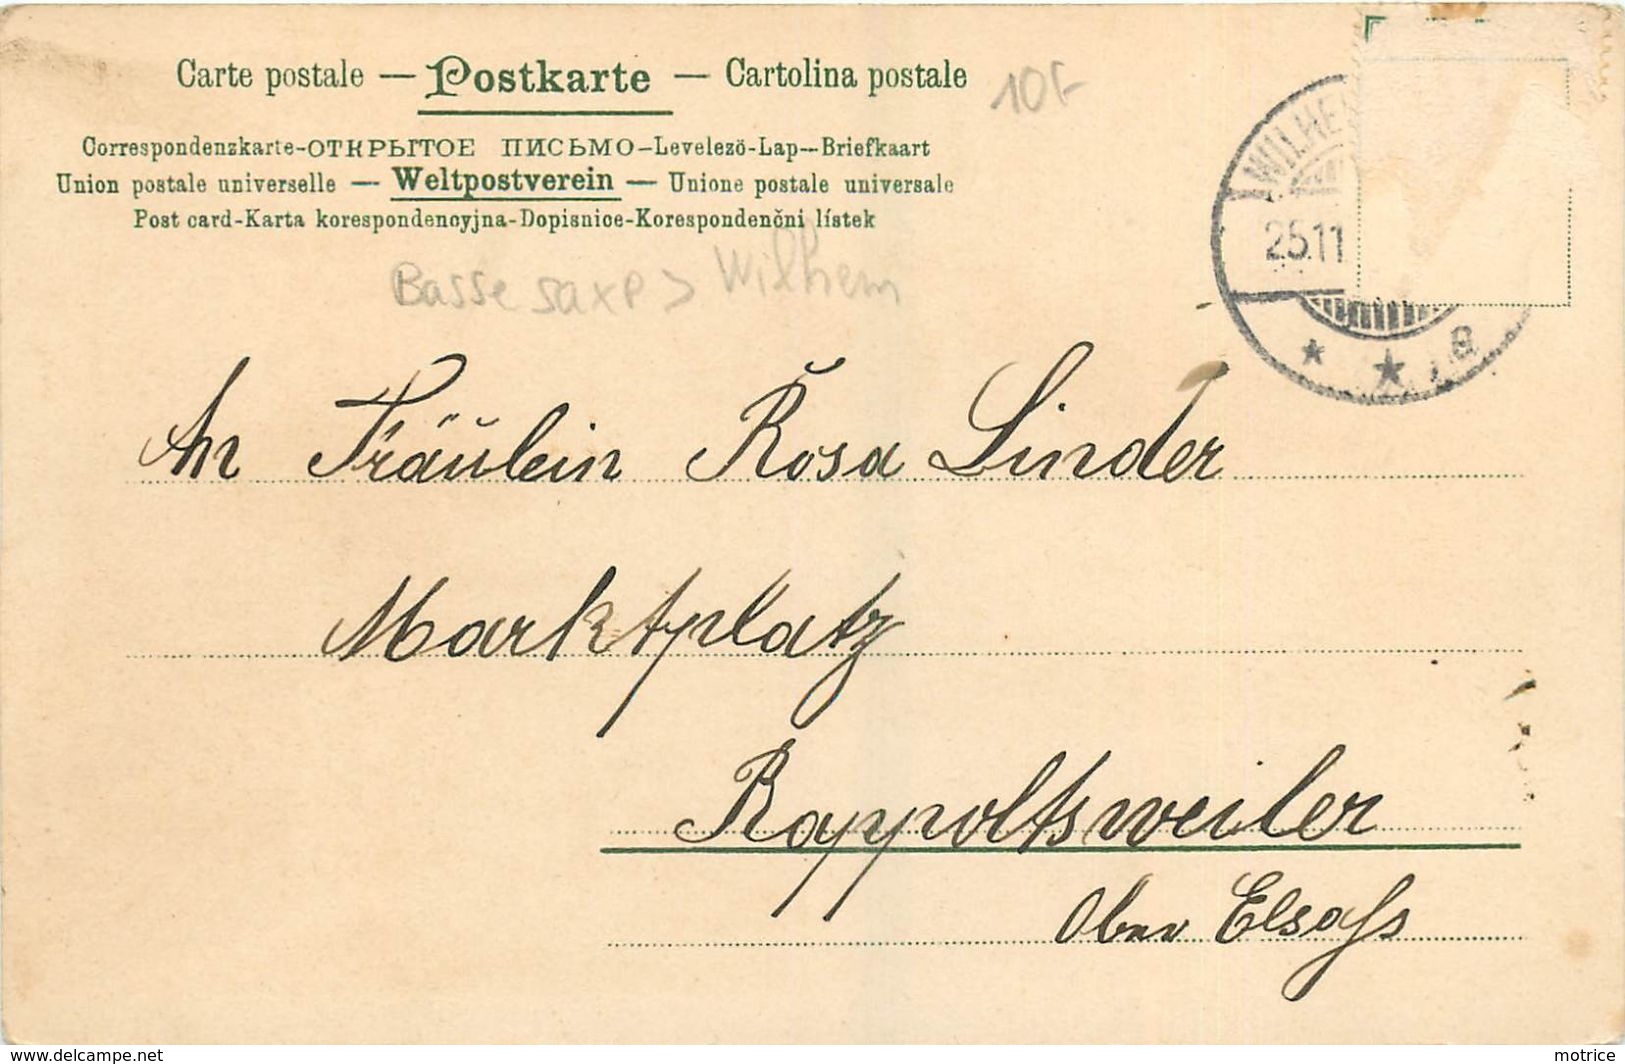 Carte postale — Postkarte — Cartolina postale
10F
Correspondenzkarte-ОТКРЫТОЕ ПИСЬМО-Levelezö-Lap--Briefkaart
Union postale universelle — Weltpostverein — Unione postale universale
Post card-Karta korespondencyjna-Dopisnice-Korespondenčni lístek
WILHE
25.11
* * a
Basse saxe > Wilhem
An Fräulein Rosa Linder
Marktplatz
Rappoltsweiler
Ober Elsaſs
www.delcampe.net
motrice